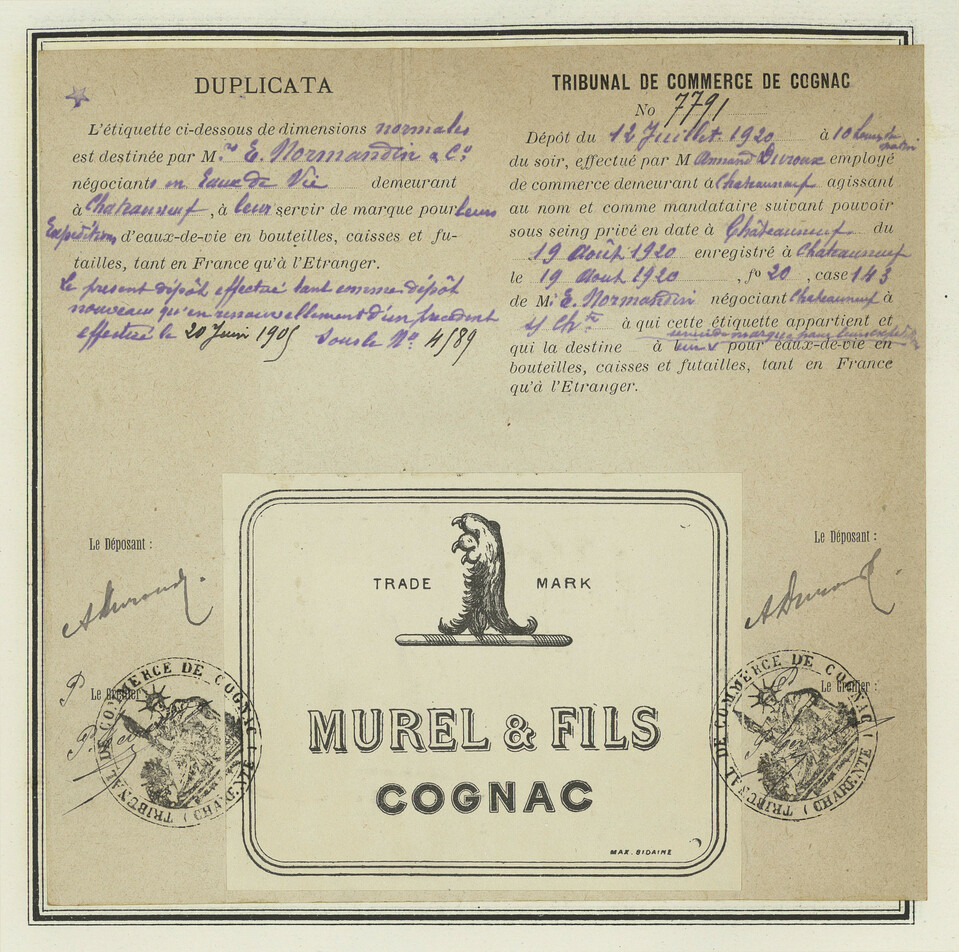 DUPLICATA
L'étiquette ci-dessous de dimensions normales
est destinée par M.rs E. Normandin & Cº
négociants en Eaux de Vie demeurant
à Chateauneuf, à leur servir de marque pour leurs
Expéditions d'eaux-de-vie en bouteilles, caisses et fu-
tailles, tant en France qu'à l'Etranger.
Le présent dépôt effectué tant comme dépôt
nouveau qu'en renouvellement d'un précédent
effectué le 20 Juin 1905 sous le Nº 4589
TRIBUNAL DE COMMERCE DE COGNAC
No 7791
Dépôt du 12 Juillet 1920 à 10 heures du matin
du soir, effectué par M Armand Duroux employé
de commerce demeurant à Chateauneuf agissant
au nom et comme mandataire suivant pouvoir
sous seing privé en date à Châteauneuf du
19 Août 1920 enregistré à Chateauneuf
le 19 Aout 1920, fº 20, case 143
de M. E. Normandin négociant Chateauneuf à
s/ Ch.te à qui cette étiquette appartient et
qui la destine à pour eaux-de-vie en
bouteilles, caisses et futailles, tant en France
qu'à l'Etranger.
Le Déposant :
Le Greffier
TRIBUNAL DE COMMERCE DE COGNAC (CHARENTE)
Le Déposant :
Le Greffier :
TRIBUNAL DE COMMERCE DE COGNAC (CHARENTE)
TRADE MARK
MUREL & FILS
COGNAC
MAX. SIDAINE